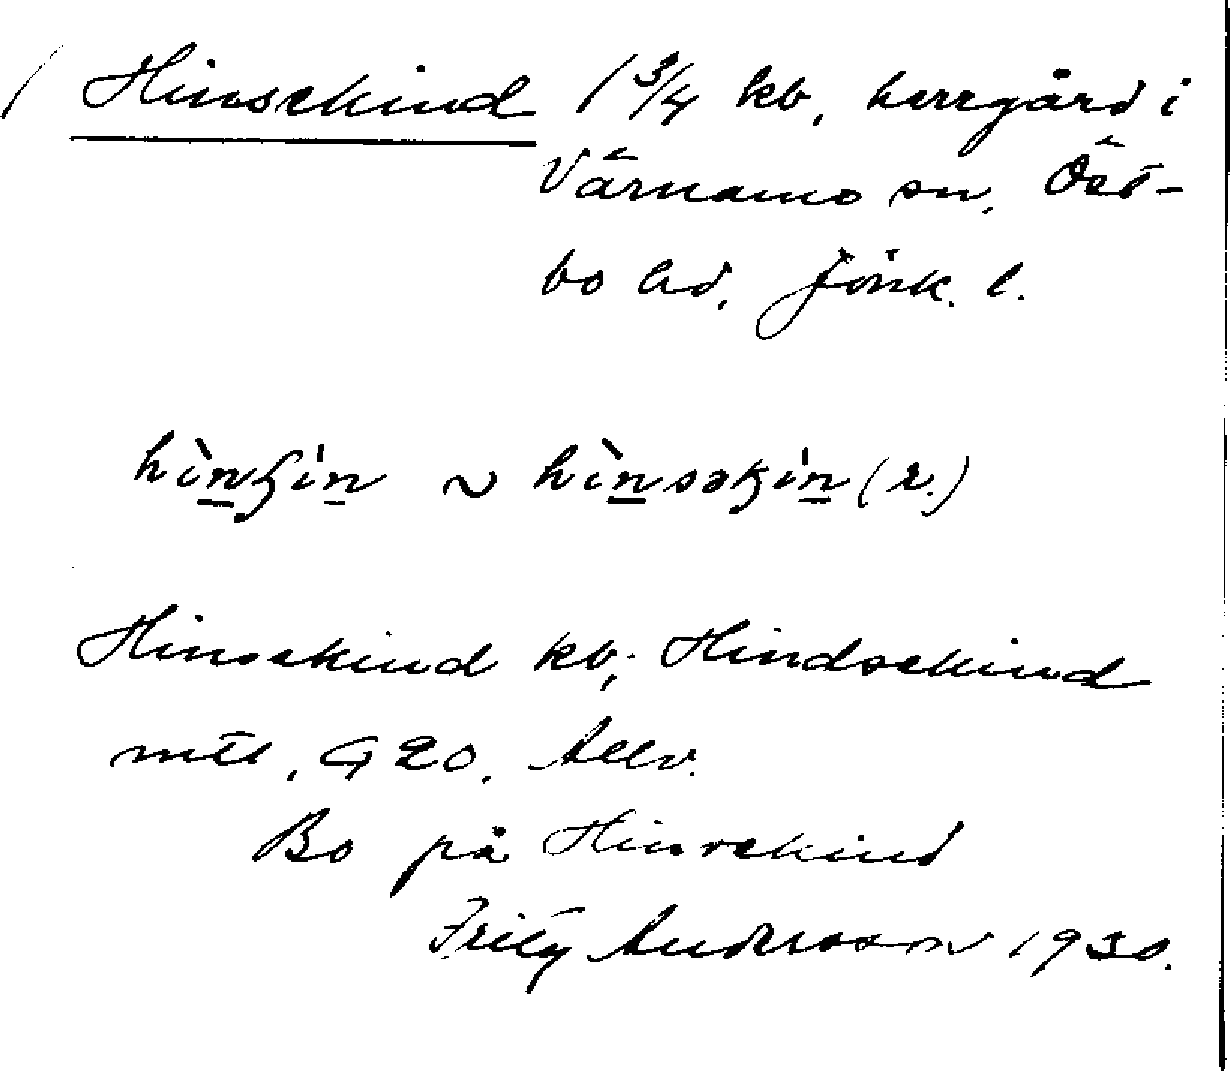 / Hinsekind 1 3/4 kb, herrgård i
Värnamo sn, Öst-
bo hd, Jönk. l.
~ (r.)
Hinsekind kb; Hindsekind
mtl, G 20,
Bo på Hinsekind
Fritz Andersson 1930.